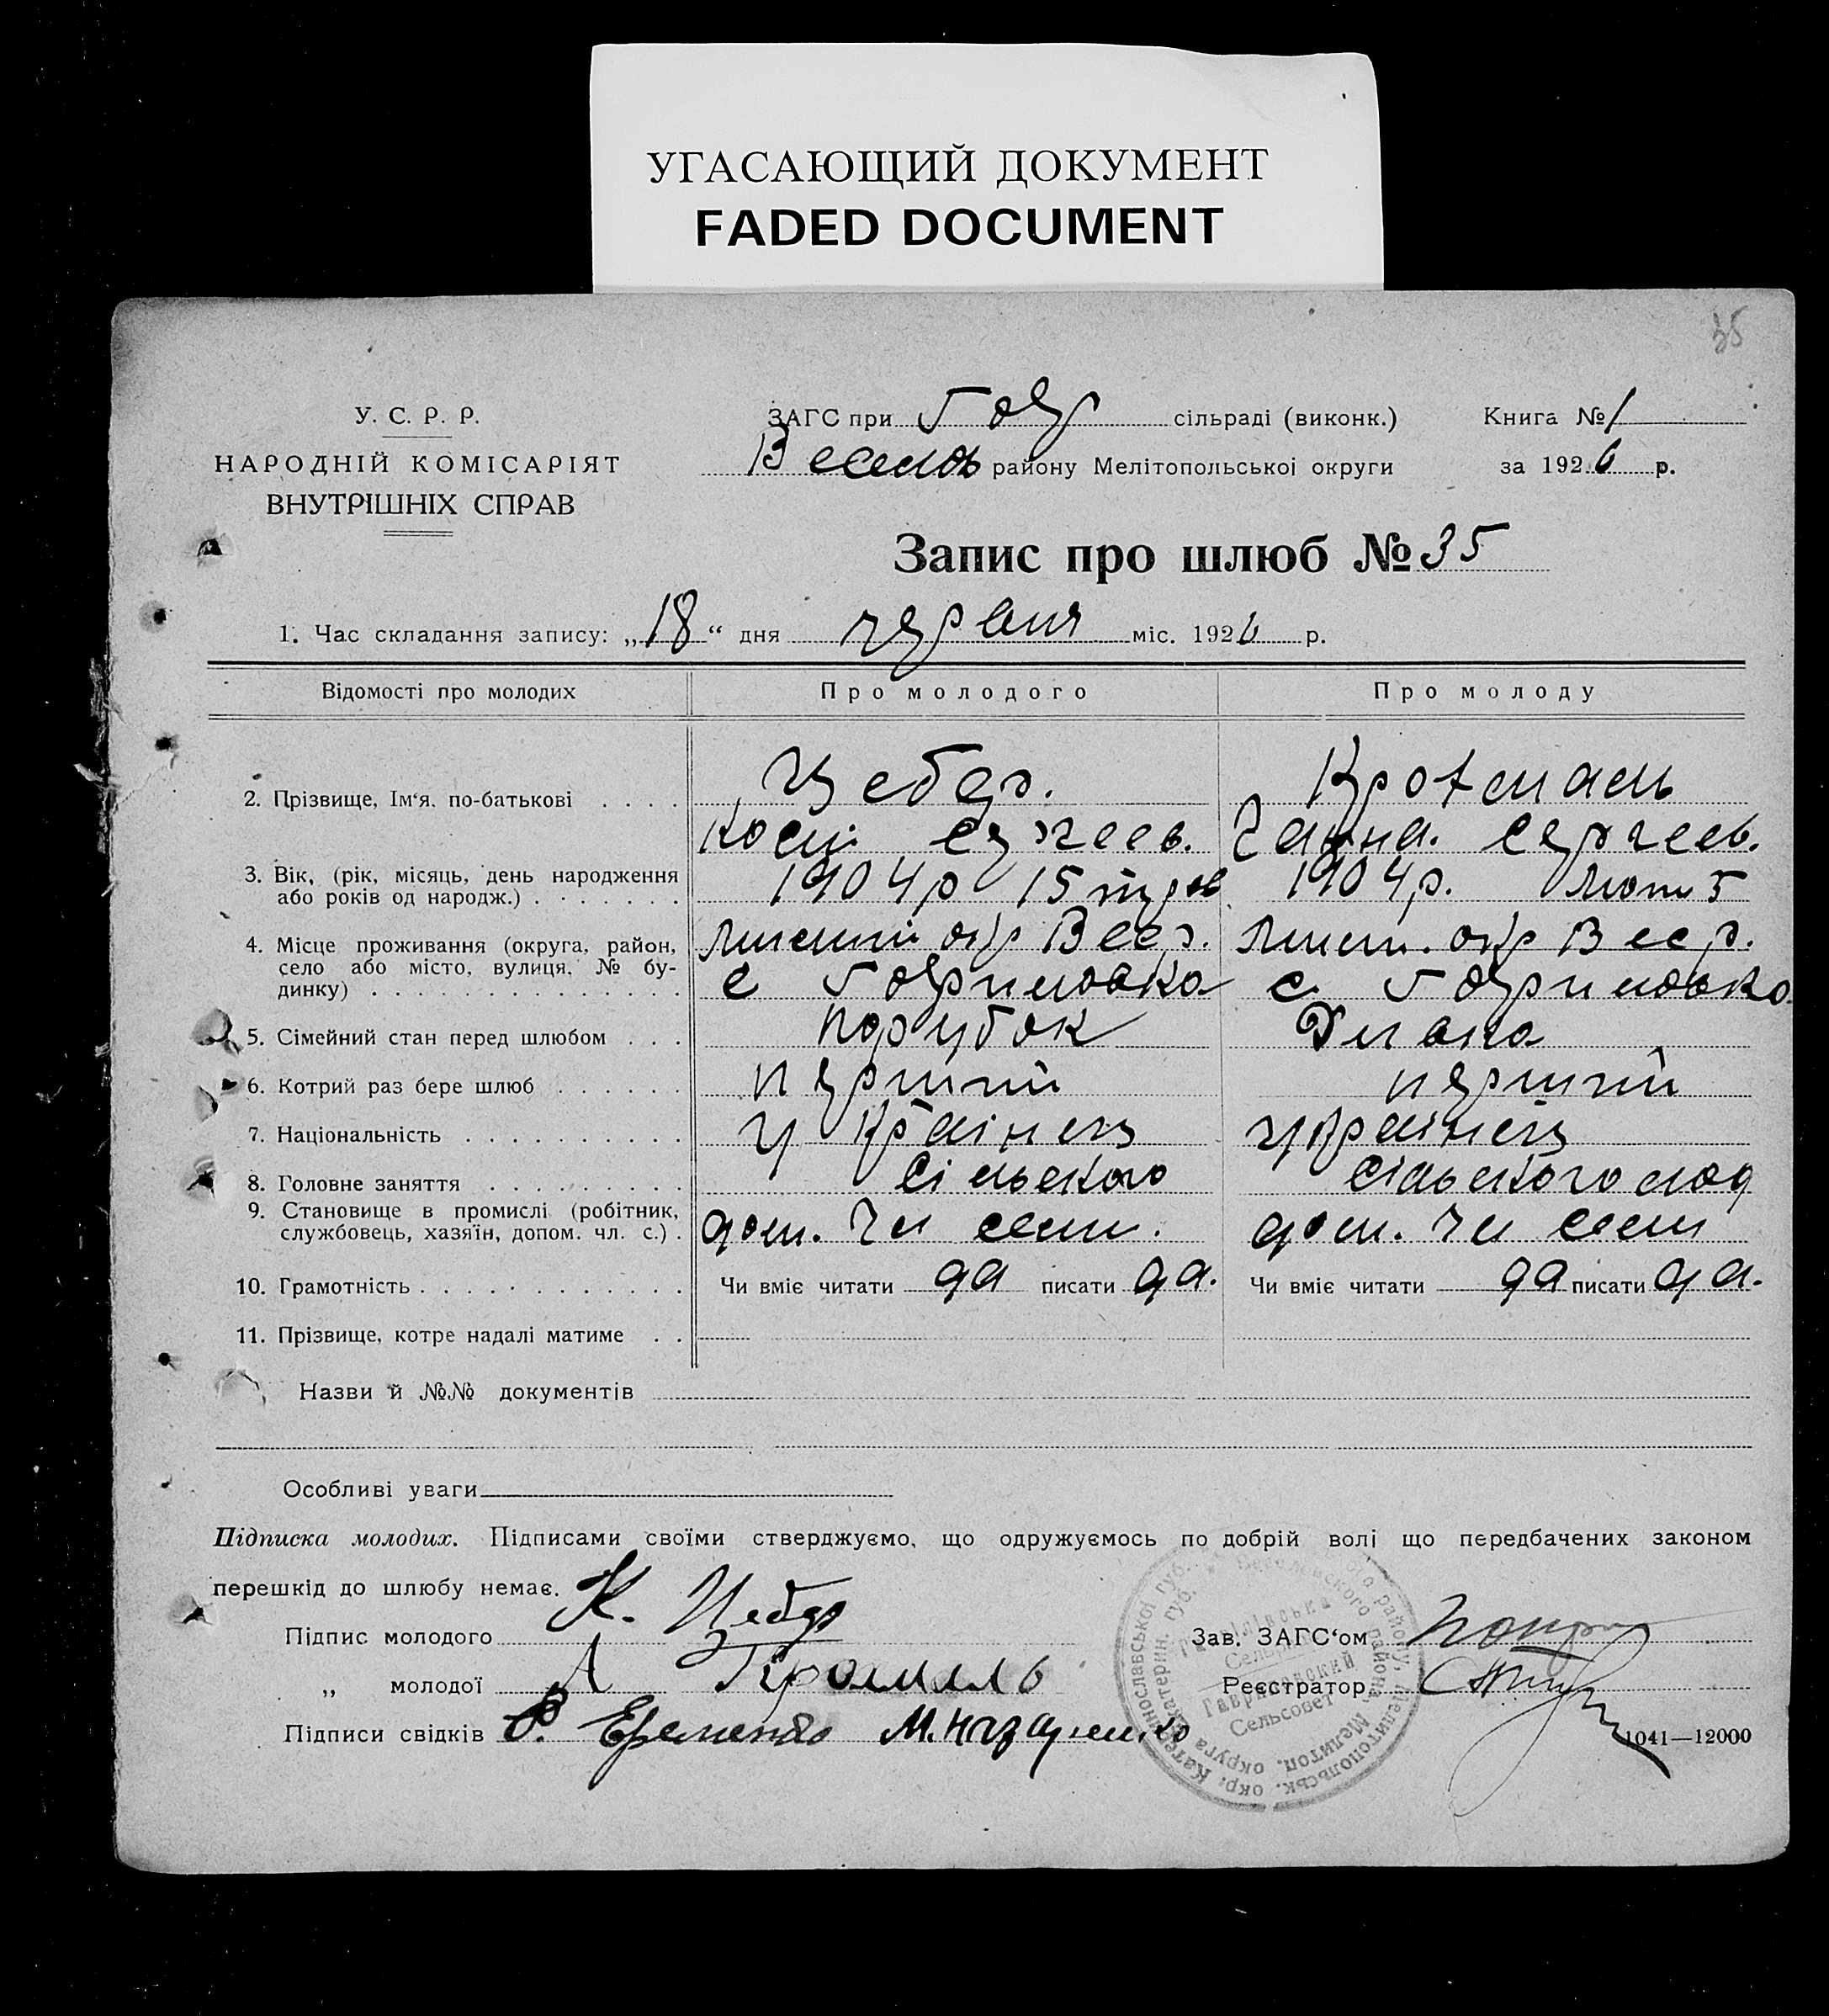 УГАСАЮЩИЙ ДОКУМЕНТ
FADED DOCUMENT
35
У. С. Р. Р.
НАРОДНІЙ КОМІСАРІЯТ
ВНУТРІШНІХ СПРАВ
ЗАГС при Гавр сільраді (виконк.) Книга № 1
Весел району Мелітопольської округи за 1926 р.
Запис про шлюб № 35
1. Час складання запису: „18“ дня червня міс. 1926 р.
Відомості про молодих Про молодого Про молоду
2. Прізвище, Ім'я, по-батькові . . . . Цебер.
Кост. Сергеев. Ганна. Сергеев.
3. Вік, (рік, місяць, день народження
або років од народж.) . . . . . . . 1904 р 15 1904 р. Лют 5
4. Місце проживання (округа, район,
село або місто, вулиця, № бу-
динку) . . . . . . . . . . . . . . с Гавриловка с Гавриловка
5. Сімейний стан перед шлюбом . . . Парубок Дивка
6. Котрий раз бере шлюб . . . . . . перший перший
7. Національність . . . . . . . . . . Українец українец
8. Головне заняття . . . . . . . . . Сільского Сільского
9. Становище в промислі (робітник,
службовець, хазяїн, допом. чл. с.) . доп. Чл сем. доп. Чл сем
10. Грамотність . . . . . . . . . . . . Чи вміє читати да писати да. Чи вміє читати да писати да.
11. Прізвище, котре надалі матиме . .
Назви й №№ документів
Особливі уваги
Підписка молодих. Підписами своїми стверджуємо, що одружуємось по добрій волі що передбачених законом
перешкід до шлюбу немає.
Підпис молодого К. Цебер Зав. ЗАГС'ом
„ молодої А Реєстратор
Підписи свідків Еременко М. 1041—12000
Гавриловский
Сельсовет